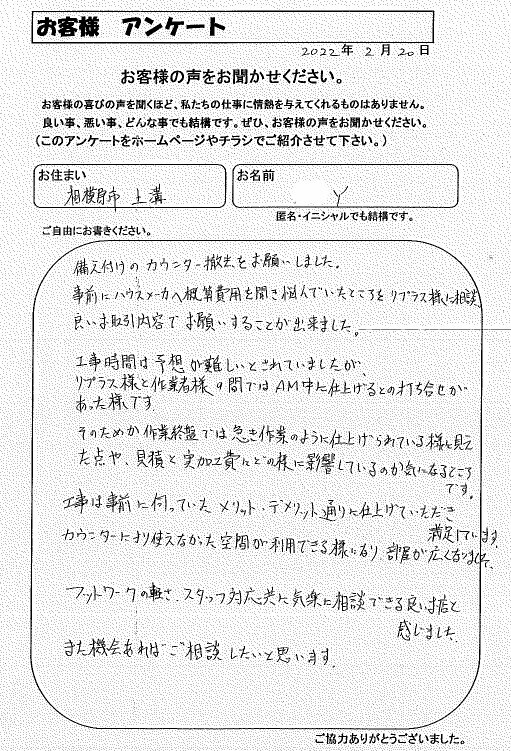 お客様 アンケート
2022年 2月 20日
お客様の声をお聞かせください。
お客様の喜びの声を聞くほど、私たちの仕事に情熱を与えてくれるものはありません。
良い事、悪い事、どんな事でも結構です。ぜひ、お客様の声をお聞かせください。
(このアンケートをホームページやチラシでご紹介させて下さい。)
お住まい
相模原市 上溝
お名前
Y
匿名・イニシャルでも結構です。
ご自由にお書きください。
備え付けのカウンター撤去をお願いしました。
事前にハウスメーカへ概算費用を聞き悩んでいたところをリプラス様に相談
良いお取引内容でお願いすることが出来ました。
工事時間は予想が難しいとされていましたが、
リプラス様と作業者様の間ではAM中に仕上げるとの打ち合せが
あった様です
そのためか作業終盤では急ぎ作業のように仕上げられている様に見え
た点や、見積と実加工費にどの様に影響しているのか気になるところ
です。
工事は事前に伺っていたメリット・デメリット通りに仕上げていただき
満足しています。
カウンターにより使えなかった空間が利用できる様になり部屋が広くなりまして、
フットワークの軽さ、スタッフ対応共に気楽に相談できる良いお店と
感じました。
また機会あればご相談したいと思います。
ご協力ありがとうございました。